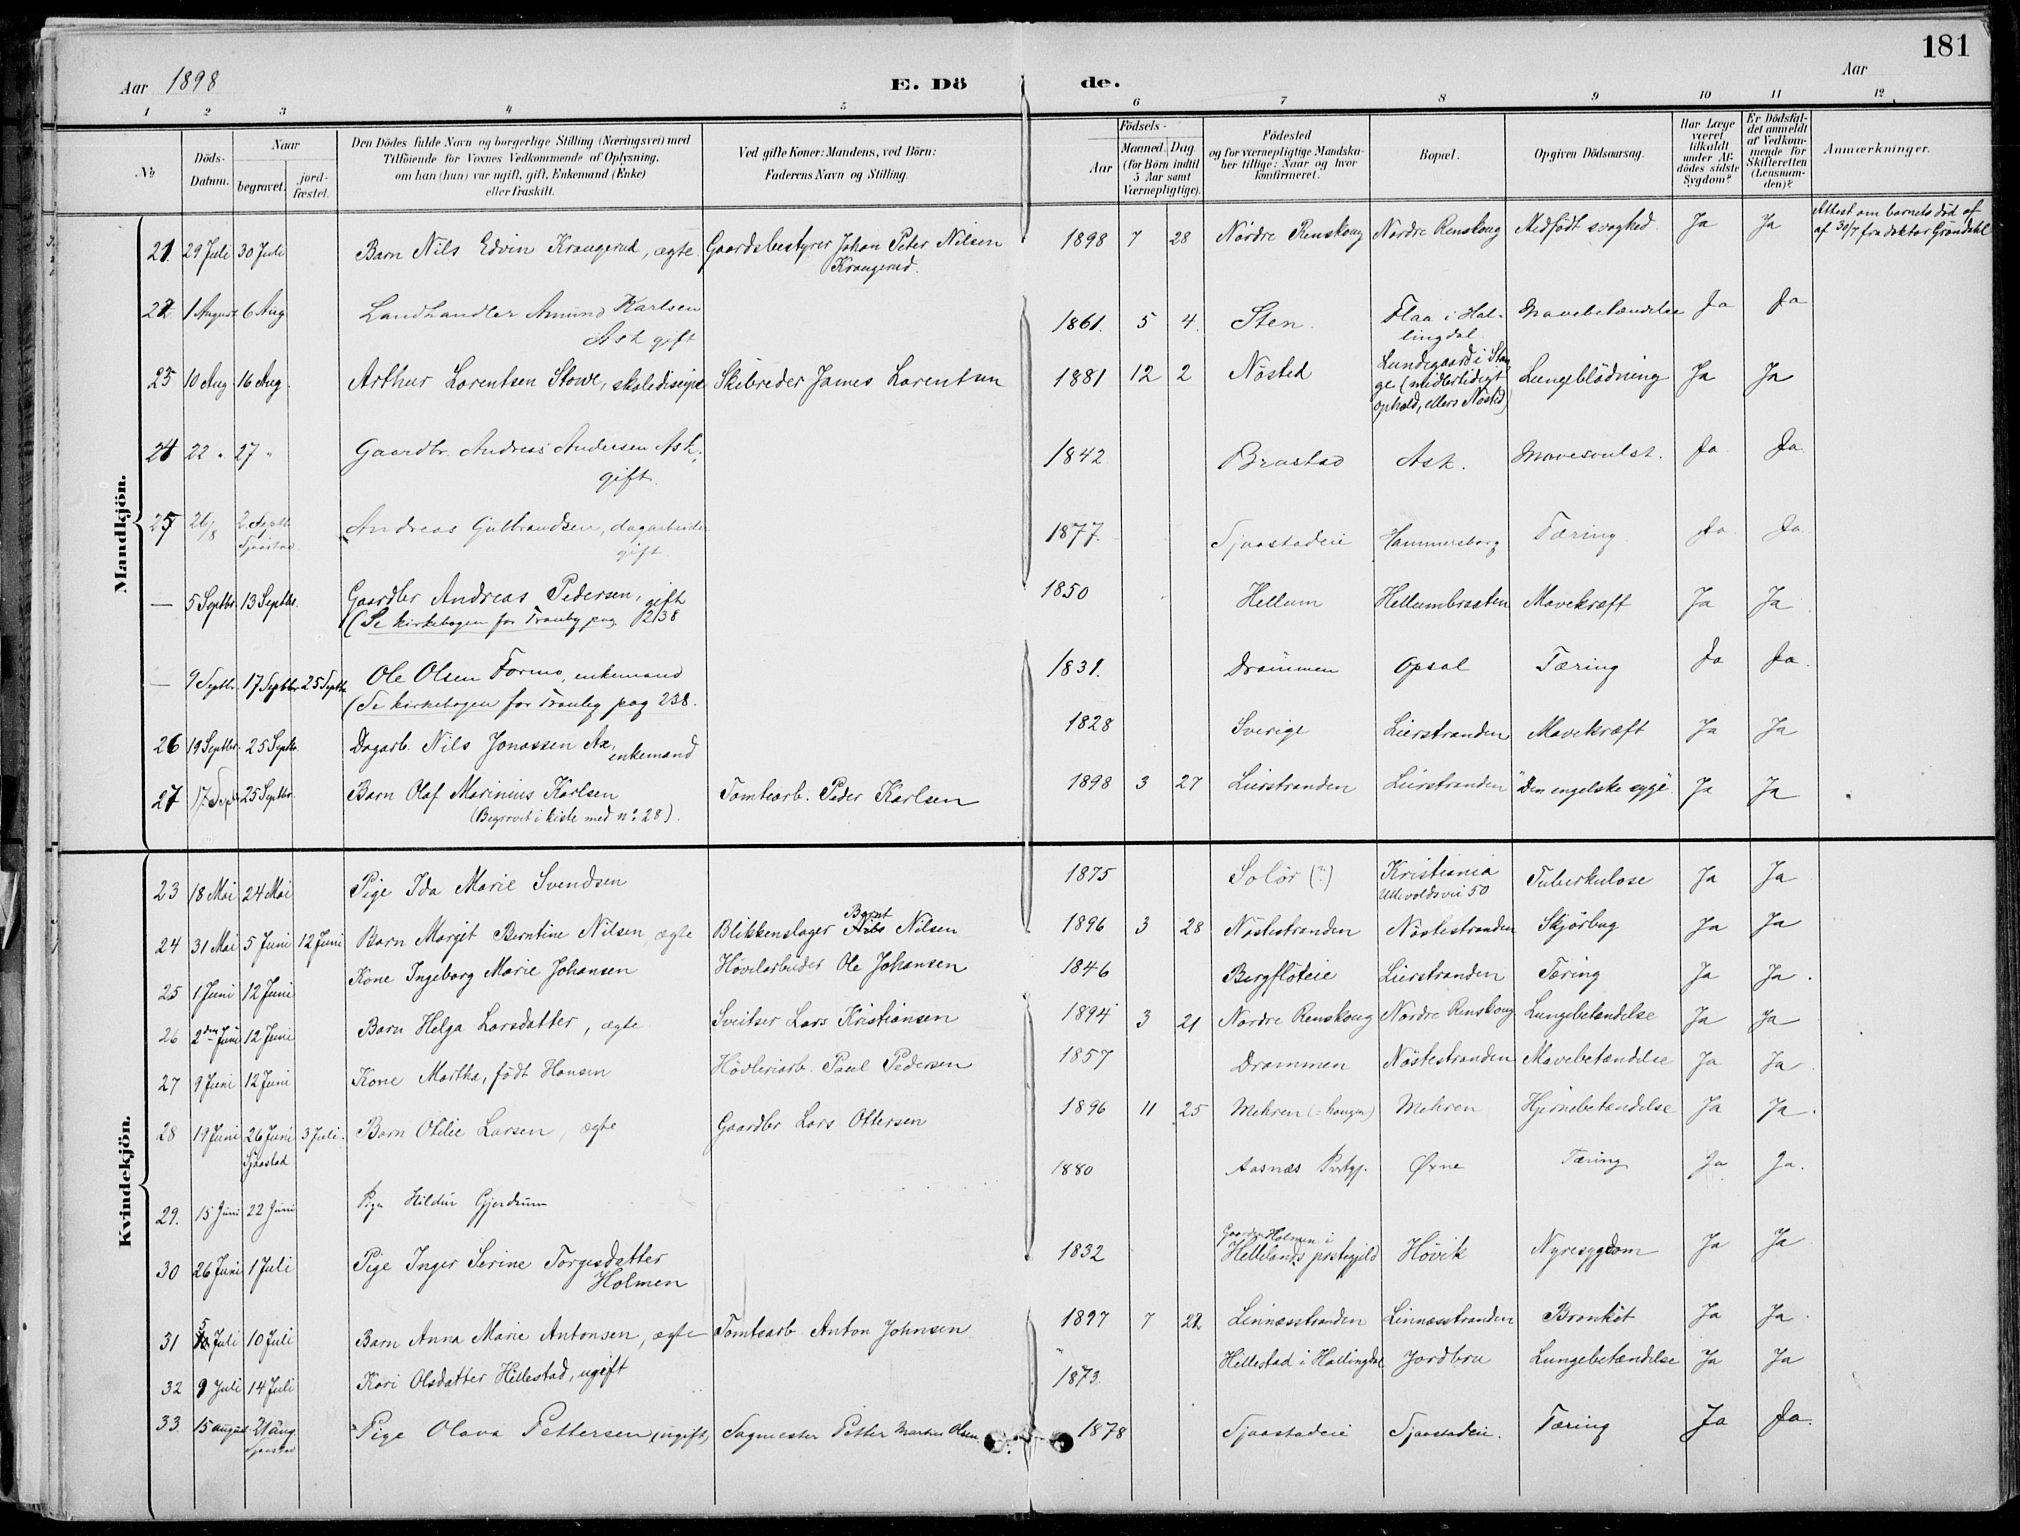 181
Aar 1898 E. Dö de. Aar
1 2 3 4 5 6 7 8 9 10 11 12
No
Döds-Datum.
Naar
begravet.
jord-fæstet.
Den Dödes fulde Navn og borgerlige Stilling (Næringsvei) med
Tilföiende for Voxnes Vedkommende af Oplysning,
om han (hun) var ugift, gift, Enkemand (Enke)
eller fraskilt.
Ved gifte Koner: Mandens, ved Börn:
Faderens Navn og Stilling.
Födsels-
Aar
Maaned. Dag
(for Börn indtil
5 Aar samt
Værnepligtige).
Födested
og for værnepligtige Mandska-
ber tillige: Naar og hvor
konfirmeret.
Bopæl.
Opgiven Dödsaarsag.
Har Læge
været
tilkaldt
under Af-
dödes sidste
Sygdom?
Er Dödsfal-
det anmeldt
af Vedkom-
mende for
Skifteretten
(Lensman-
den)?
Anmærkninger.
Mandkjön.
21 29 Juli 30 Juli Barn Nils Edvin Kraugerud, ægte Gaardsbestyrer Johan Peter Nilsen Kraugerud. 1898 7 28 Nördre Renskoug Nordre Renskoug Medfödt svaghed. Ja Ja Attest om barnets död af
af 30/7 fra doktor Gröndahl
22 1 August 6 Aug Landhandler Amund Karlsen
Ask gift 1861. 5 4. Sten. Flaa i Hal-
lingdal. Mavebetændelse Ja Ja
23 10 Aug. 16 Aug. Arthur Lorentsen Stowe, skolediscipel Skibreder James Lorentsen 1881 12 2 Nösted Lundegaard i Stan
ge (midlertidigt
ophold, ellers Nösted) Lungeblödning Ja Ja
24 22 " 27 " Gaardbr. Andreas Andersen Ask,
gift. 1842 Brastad Ask. Mavesvulst. Ja Ja.
25 26/8 2 Septb.
Tjaastad Andreas Gulbrandsen, dagarbeider
gift. 1877. Tjaastadeie Hammersborg Tæring. Ja. Ja.
— 5 Septbr. 13 Septbr. Gaardbr Andreas Pedersen, gift
(Se kirkebogen for Tranby pag 238 1850 Hellum Hellumbraaten Mavekræft Ja Ja
— 9 Septbr. 17 Septbr 25 Septbr. Ole Olsen Formo, enkemand
(Se kirkebogen for Tranby pag 238. 1831. Drammen Opsal Tæring Ja Ja.
26 19 Septbr. 25 Septbr. Dagarb. Nils Jonassen Ax, enkemand 1828 Sverige Lierstranden Mavekræft Ja Ja
27 17 Sep 25 Septbr. Barn Olaf Marinius Karlsen
(Begravet i kiste med no. 28). Tomtearb. Peder Karlsen 1898 3 27 Lierstranden Lierstranden "Den engelske syge" Ja Ja
Kvindekjön.
23 18 Mai 24 Mai Pige Ida Marie Svendsen 1875 Solör (?) Kristiania
Ullevoldsvei 50 Tuberkulose Ja Ja
24 31 Mai 5 Juni 12 Juni Barn Margit Berntine Nilsen, ægte Blikkenslager Bernt Nils Nilsen 1896 3 28 Nöstestranden Nöstestranden Skjörbug Ja Ja
25 1 Juni 12 Juni Kone Ingeborg Marie Johansen Hövelarbeider Ole Johansen 1846 Bergflöteie Lierstranden Tæring Ja Ja.
26 2den Juni 12 Juni Barn Helga Larsdatter, ægte Sveitser Lars Kristiansen 1894 3 21 Nordre Renskoug Nordre Renskoug Lungebetændelse Ja Ja
27 9 Juni 12 Juni Kone Martha, född Hansen Hövleriarb. Paul Pedersen 1857 Drammen Nöstestranden Mavebetændelse Ja Ja.
28 19 Juni 26 Juni
Tjaastad 3 Juli. Barn Otilie Larsen, ægte Gaardbr Lars Ottersen 1896 11 25 Mehren (=haugen) Mehren Hjernebetændelse Ja Ja.
29. 15 Juni 22 Juni Pige Hildur Gjerdrum 1880 Aasnæs Prstgj. Øxne Tæring Ja. Ja.
30 26 Juni 1 Juli Pige Inger Serine Torgesdatter
Holmen 1832 Gaarden Holmen i
Hellelands prstegjeld Hövik Nyresygdom Ja Ja
31 5 Juli 10 Juli Barn Anna Marie Antonsen, ægte Tomtearb. Anton Johnsen 1897 7 22 Linnæsstranden Linnæsstranden Bronkit Ja Ja.
32 9 Juli 14 Juli Kari Olsdatter Hillestad, ugift 1873. Hillestad i Hallingdal Jordbru Lungebetændelse Ja Ja
33. 15 august 21 aug.
Tjaastad Pige Olava Pettersen (ugift) Sagmester Petter Martin Olsen. 1878 Tjaastadeie Tjaastadeie. Tæring Ja Ja.